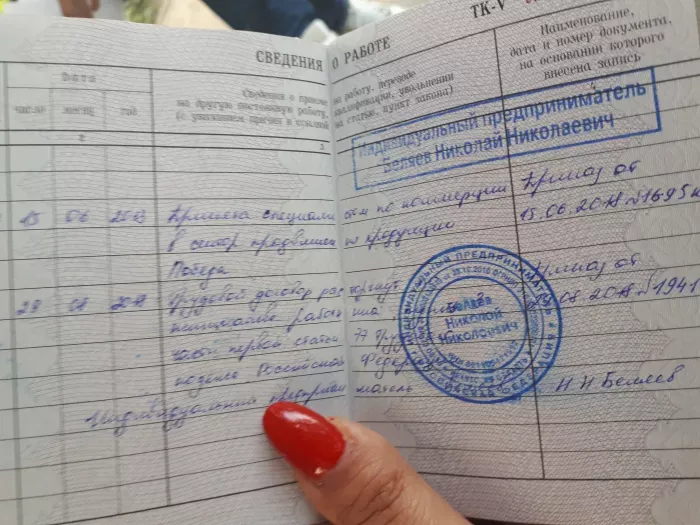 СВЕДЕНИЯ О РАБОТЕ
ТК-V
Дата
число
месяц
год
Сведения о приеме на работу, переводе
на другую постоянную работу, квалификации, увольнении
(с указанием причин и ссылкой на статью, пункт закона)
Наименование,
дата и номер документа,
на основании которого
внесена запись
2
3
4
Индивидуальный предприниматель
Беляев Николай Николаевич
15 06 2018 Принята специалистом по коммерции Приказ от
в сектор продвижения продукции 15.06.2018 №1695к
Победа
29 08 2018 Трудовой договор расторгнут Приказ от
инициативе работника 08 2018 №1941
частью первой статьи 77 Трудового
кодекса Российской Федерации
Индивидуальный предприниматель Н Н Беляев
Беляев
Николай
Николаевич